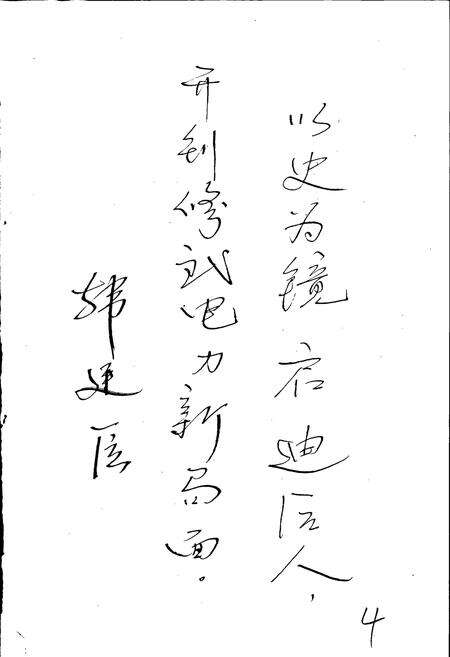 以史为镜启迪后人,
开创修武电力新局面。
韩建
4